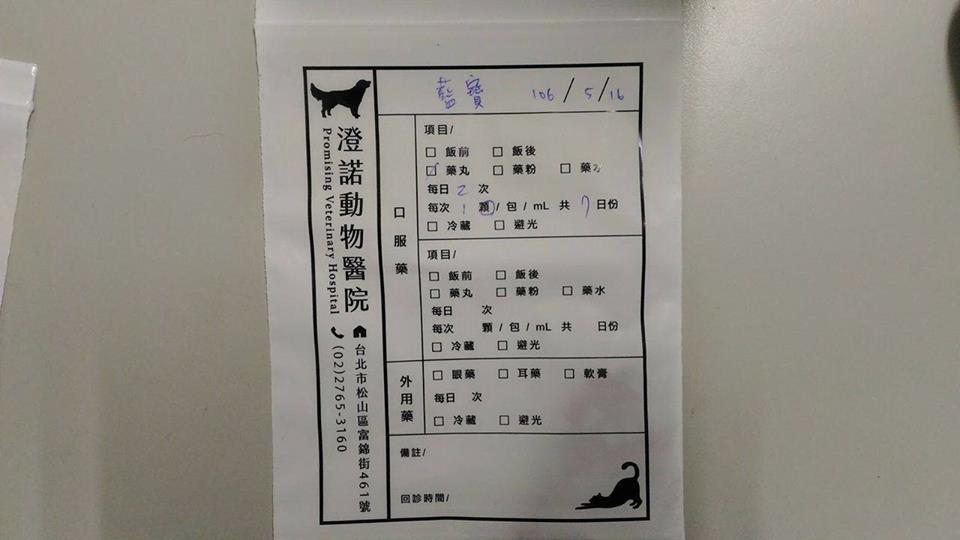 澄諾動物醫院
Promising Veterinary Hospital
台北市松山區富錦街461號
(02)2765-3160
藍寶 106/5/16
口服藥
項目/
飯前 飯後
藥丸 藥粉 藥水
每日 2 次
每次 1 顆/包/mL 共 7 日份
冷藏 避光
項目/
飯前 飯後
藥丸 藥粉 藥水
每日 次
每次 顆/包/mL 共 日份
冷藏 避光
外用藥
眼藥 耳藥 軟膏
每日 次
冷藏 避光
備註/
回診時間/